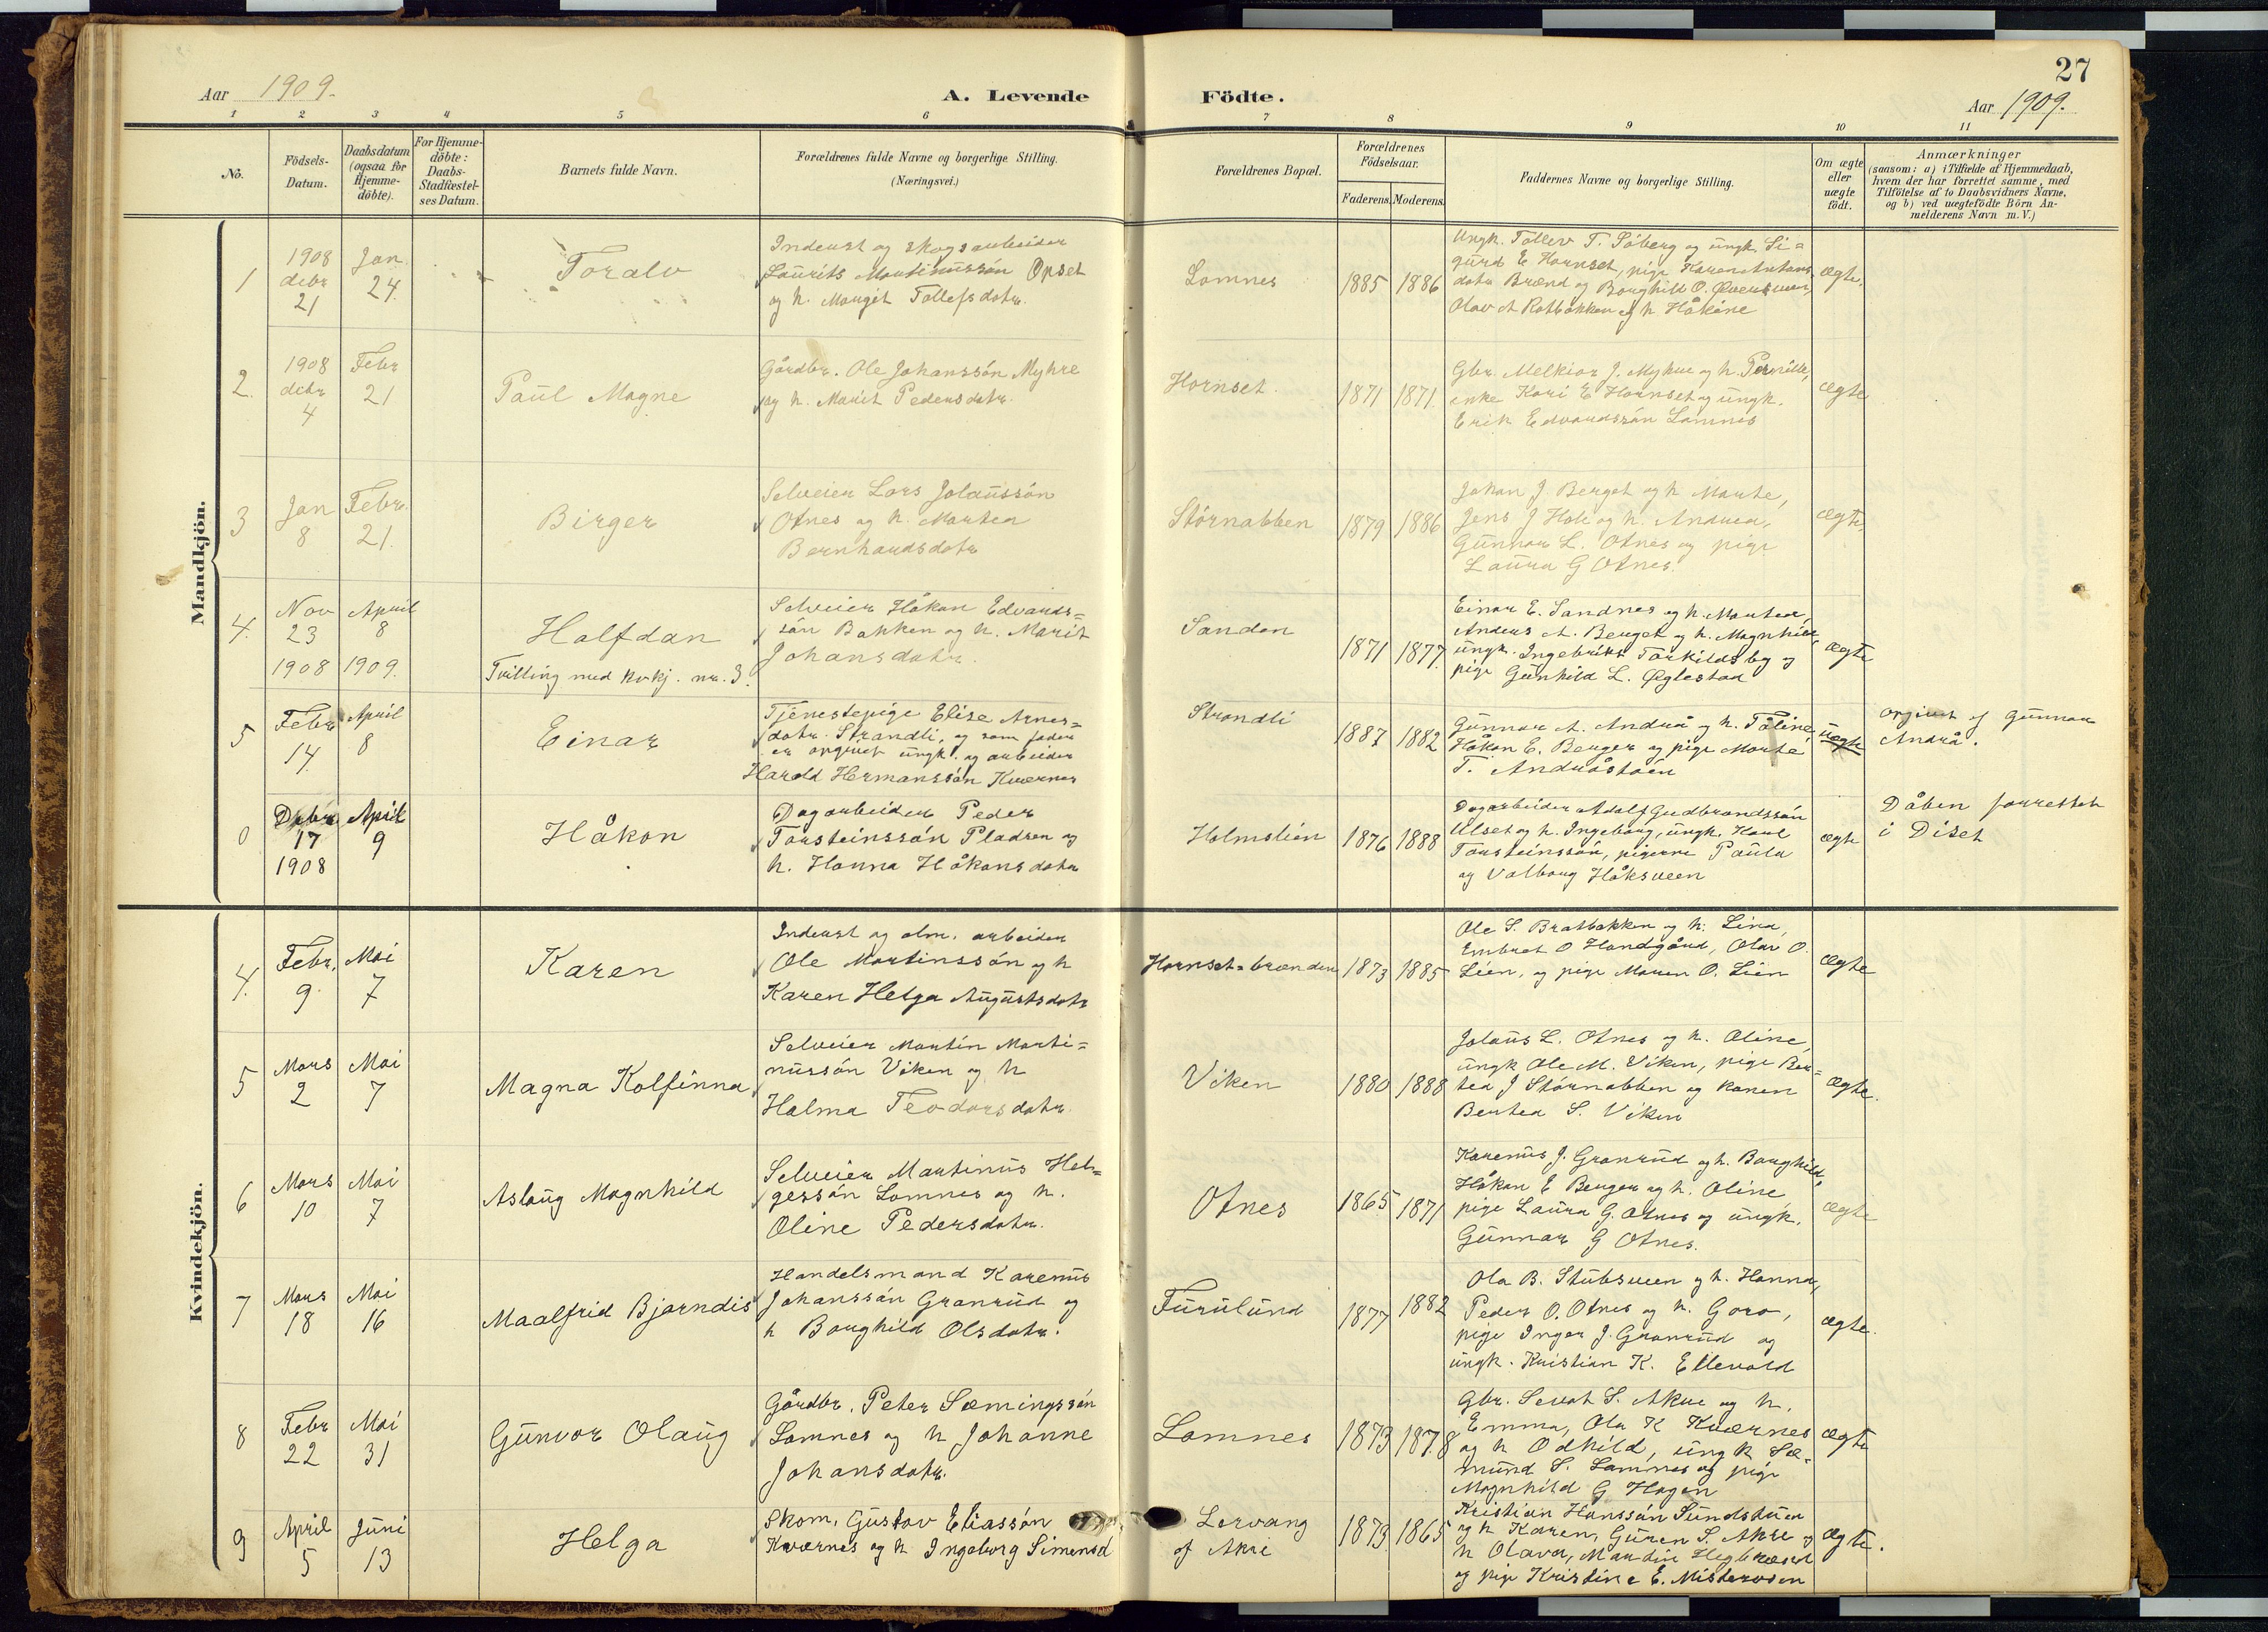 27
Aar 1909.
A. Levende Födte.
Aar 1909.
1 2 3 4 5 6 7 8 9 10 11
No.
Födsels-
Datum.
Daabsdatum
(ogsaa for
Hjemme-
döbte).
For Hjemme-
döbte:
Daabs-
Stadfæstel-
ses Datum.
Barnets fulde Navn.
Forældrenes fulde Navne og borgerlige Stilling.
(Næringsvei.)
Forældrenes Bopæl.
Forældrenes
Födselsaar.
Faderens. Moderens.
Faddernes Navne og borgerlige Stilling.
Om ægte
eller
uægte
födt.
Anmærkninger
(saasom: a) i Tilfælde af Hjemmedaab,
hvem der har forrettet samme, med
Tilföielse af to Daabsvidners Navne,
og b) ved uægtefödte Börn An-
melderens Navn m. V.)
Mandkjön.
1
1908
debr
21
Jan
24
Toralv
Inderst og skogsarbeider
Laurits Martinussön Opset
og h. Margit Tollefsdatr.
Lomnes
1885 1886
Ungk. Tollev T. Söberg og ungk. Si=
gurd E Hornset, pige Karen Antons
datr Brænd og Borghild O. Øvensven,
Olav A Rotbakken og h Håkine
ægte.
2.
1908
debr
4
Febr
21
Paul Magne
Gårdbr. Ole Johanssön Myhre
og h. Marit Pedersdatr.
Hornset.
1871 1871.
Gbr. Melkior J. Myhre og h. Pernille,
enke Kari E Hornset og ungk.
Erik Edvardssön Lomnes
ægte
3
Jan
8
Febr.
21.
Birger
Selveier Lars Jolaussön
Otnes og h. Martea
Bernhardsdatr
Störnabben
1879 1886
Johan J Berget og h Marte,
Jens J Hole og h. Andrea,
Gunnar L. Otnes og pige
Laura G Otnes.
ægte,
4.
Nov
23
1908
April
8
1909.
Halfdan
Tvilling med kvkj. nr. 3.
Selveier Håkon Edvards=
sön Bakken og h. Marit
Johansdatr.
Sanden
1871 1877.
Einar E. Sandnes og h. Martea,
Anders A. Berget og h. Magnhild,
ungk. Ingebrikt Torkildsby og
pige Gunhild L. Øglestad
ægte
5
Febr
14.
April
8
Einar
Tjenestepige Elise Arnes=
datr. Strandli, og som fader
er opgivet ungk. og arbeider
Harold Hermanssön Kværnes
Strandli
1887 1882
Gunnar A. Andrå og h. Toline,
Håkon E. Berger og pige Marte
T. Andråstöen
uægte
opgivet af Gunnar
Andrå.
0
Debr
17
1908
April
9
Håkon
Dagarbeider Peder
Torsteinssön Pladsen og
h. Hanna Håkonsdatr
Holmslien
1876 1888
Dagarbeider Adolf Gudbrandssön
Ulset og h. Ingeborg, ungk. Karl
Torsteinssön, pigerne Paula
og Valborg Håksveen
ægte
Dåben forrettet
i Diset
Kvindekjön.
4.
Febr.
9.
Mai
7
Karen
Inderst og alm. arbeider
Ole Martinssön og h
Karen Helga Augustsdatr
Hornset=brænden
1873 1885
Ole S. Bratbakken og h. Lina,
Embret O Handgård, Olav O.
Lien, og pige Maren O. Lien
ægte
5
Mars
2
Mai
7
Magna Kolfinna
Selveier Martin Marti=
nussön Viken og h
Halma Teodorsdatr.
Viken
1880 1888
Jolaus L. Otnes og h. Oline,
ungk Ole M. Viken, pige Ber=
tea J Störnabben og konen
Bertea S. Viken
ægte.
6
Mars
10
Mai
7
Aslaug Magnhild
Selveier Martinus Hel=
gessön Lomnes og h.
Oline Pedersdatr.
Otnes
1865 1871
Karenus J. Granrud og h. Borghild,
Håkon E Berger og h. Oline
pige Laura G. Otnes og ungk.
Gunnar G Otnes.
ægte
7
Mars
18
Mai
16
Maalfrid Bjarndis
Handelsmand Karenus
Johanssön Granrud og
h Borghild Olsdatr.
Furulund
1877 1882
Ola B. Stubsveen og h. Hanna,
Peder O. Otnes og h. Goro,
pige Inger J. Granrud og
ungk. Kristian K. Ellevold
ægte.
8
Febr
22
Mai
31
Gunvor Olaug
Gårdbr. Peter Sæmingssön
Lomnes og h Johanne
Johansdatr.
Lomnes
1873 1878
Gbr. Sevat S. Akre og h.
Emma, Ola K Kværnes
og h Odhild, ungk Sæ=
mund S. Lomnes og pige
Magnhild G Hagen
ægte
9
April
5
Juni
13
Helga
Skom. Gustav Eliassön
Kværnes og h Ingeborg Simensd
Lervang
af Akre
1873 1865
Kristian Hanssön Sundstuen
og h Karen, Guren S. Akre og
h Olava, Martin Hegbræsvd
og pige Kristine E. Misterosen
ægte.